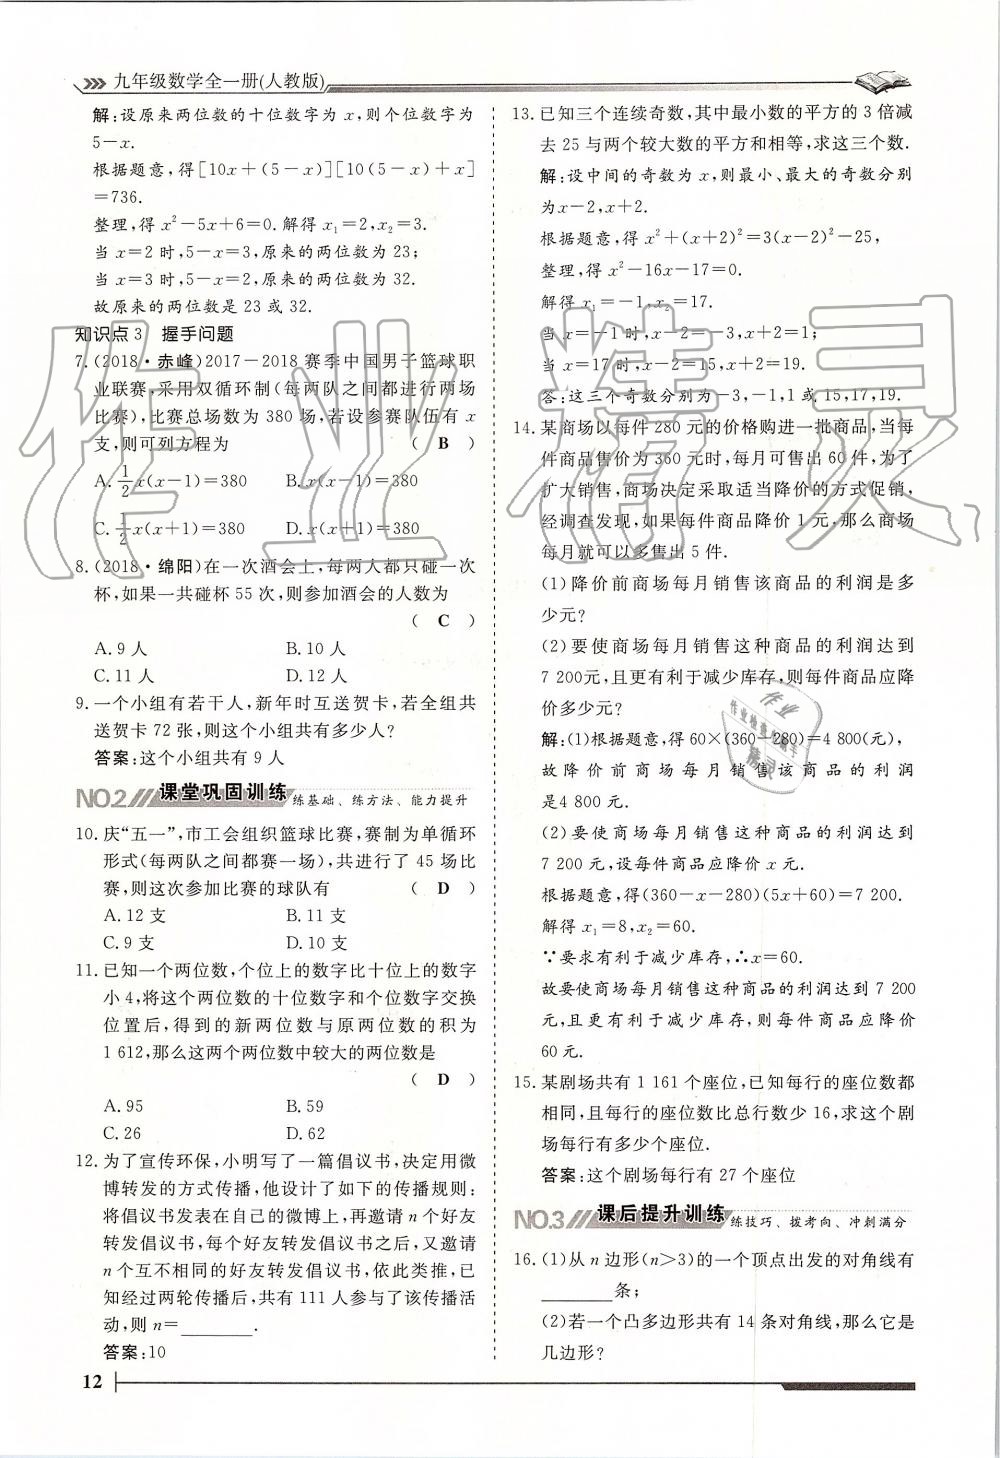 九年级数学全一册(人教版)
解:设原来两位数的十位数字为 x,则个位数字为
5-x.
根据题意,得[10x+(5-x)][10(5-x)+x]
=736.
整理,得 x²-5x+6=0.解得 x₁=2,x₂=3.
当 x=2 时,5-x=3,原来的两位数为 23;
当 x=3 时,5-x=2,原来的两位数为 32.
故原来的两位数是 23 或 32.
知识点 3 握手问题
7.(2018·赤峰)2017-2018 赛季中国男子篮球职
业联赛,采用双循环制(每两队之间都进行两场
比赛),比赛总场数为 380 场,若设参赛队伍有 x
支,则可列方程为 ( B )
A.1/2 x(x-1)=380 B.x(x-1)=380
C.1/2 x(x+1)=380 D.x(x+1)=380
8.(2018·绵阳)在一次酒会上,每两人都只碰一次
杯,如果一共碰杯 55 次,则参加酒会的人数为
( C )
A.9 人 B.10 人
C.11 人 D.12 人
9.一个小组有若干人,新年时互送贺卡,若全组共
送贺卡 72 张,则这个小组共有多少人?
答案:这个小组共有 9 人
NO.2 课堂巩固训练 练基础、练方法、能力提升
10.庆“五一”,市工会组织篮球比赛,赛制为单循环
形式(每两队之间都赛一场),共进行了 45 场比
赛,则这次参加比赛的球队有 ( D )
A.12 支 B.11 支
C.9 支 D.10 支
11.已知一个两位数,个位上的数字比十位上的数字
小 4,将这个两位数的十位数字和个位数字交换
位置后,得到的新两位数与原两位数的积为
1 612,那么这两个两位数中较大的两位数是
( D )
A.95 B.59
C.26 D.62
12.为了宣传环保,小明写了一篇倡议书,决定用微
博转发的方式传播,他设计了如下的传播规则:
将倡议书发表在自己的微博上,再邀请 n 个好友
转发倡议书,每个好友转发倡议书之后,又邀请
n 个互不相同的好友转发倡议书,依此类推,已
知经过两轮传播后,共有 111 人参与了该传播活
动,则 n=______.
答案:10
12
13.已知三个连续奇数,其中最小数的平方的 3 倍减
去 25 与两个较大数的平方和相等,求这三个数.
解:设中间的奇数为 x,则最小、最大的奇数分别
为x-2,x+2.
根据题意,得 x²+(x+2)²=3(x-2)²-25,
整理,得 x²-16x-17=0.
解得 x₁=-1,x₂=17.
当 x=-1 时,x-2=-3,x+2=1;
当 x=17 时,x-2=15,x+2=19.
答:这三个奇数分别为-3,-1,1 或 15,17,19.
14.某商场以每件 280 元的价格购进一批商品,当每
件商品售价为 360 元时,每月可售出 60 件,为了
扩大销售,商场决定采取适当降价的方式促销,
经调查发现,如果每件商品降价 1 元,那么商场
每月就可以多售出 5 件.
(1)降价前商场每月销售该商品的利润是多
少元?
(2)要使商场每月销售这种商品的利润达到
7 200元,且更有利于减少库存,则每件商品应降
价多少元?
解:(1)根据题意,得 60×(360-280)=4 800(元),
故降价前商场每月销售该商品的利润
是4 800 元.
(2)要使商场每月销售这种商品的利润达到
7 200 元,设每件商品应降价 x 元.
根据题意,得(360-x-280)(5x+60)=7 200.
解得 x₁=8,x₂=60.
∵要求有利于减少库存,∴x=60.
故要使商场每月销售这种商品的利润达到 7 200
元,且更有利于减少库存,则每件商品应降价
60 元.
15.某剧场共有 1 161 个座位,已知每行的座位数都
相同,且每行的座位数比总行数少 16,求这个剧
场每行有多少个座位.
答案:这个剧场每行有 27 个座位
NO.3 课后提升训练 练技巧、拨考向、冲刺满分
16.(1)从 n 边形(n>3)的一个顶点出发的对角线有
______条;
(2)若一个凸多边形共有 14 条对角线,那么它是
几边形?
作业精灵